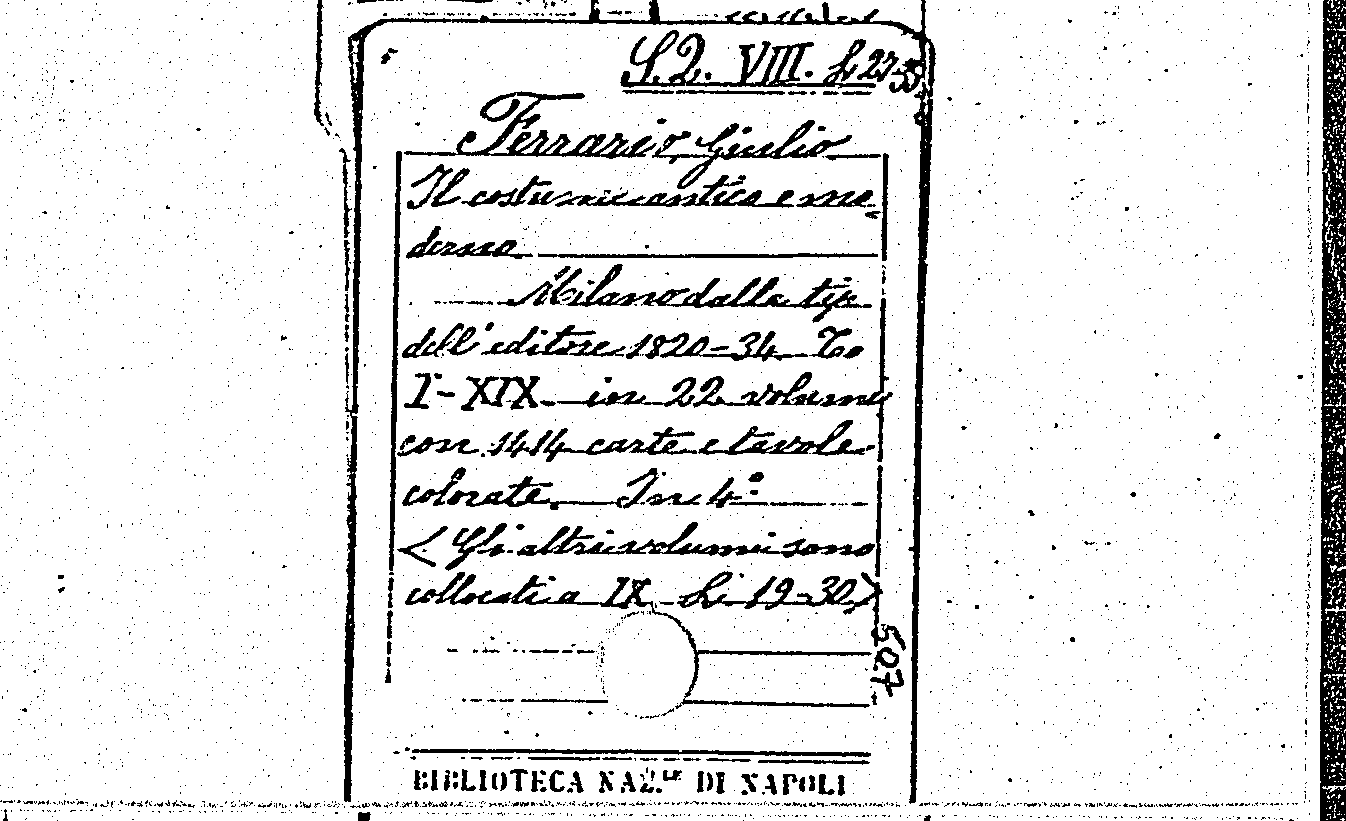 S.Q. VIII. L 27-35
Ferrario, Giulio
Il costume antico e mo
derno
Milano dalla tip.
dell' editore 1820-34 To
I-XIX in 22 volumi
con 1414 carte e tavole
colorate. In 4º
< Gli altri volumi sono
collocati a IX Li 19-30>
507
BIBLIOTECA NAZ.LE DI NAPOLI